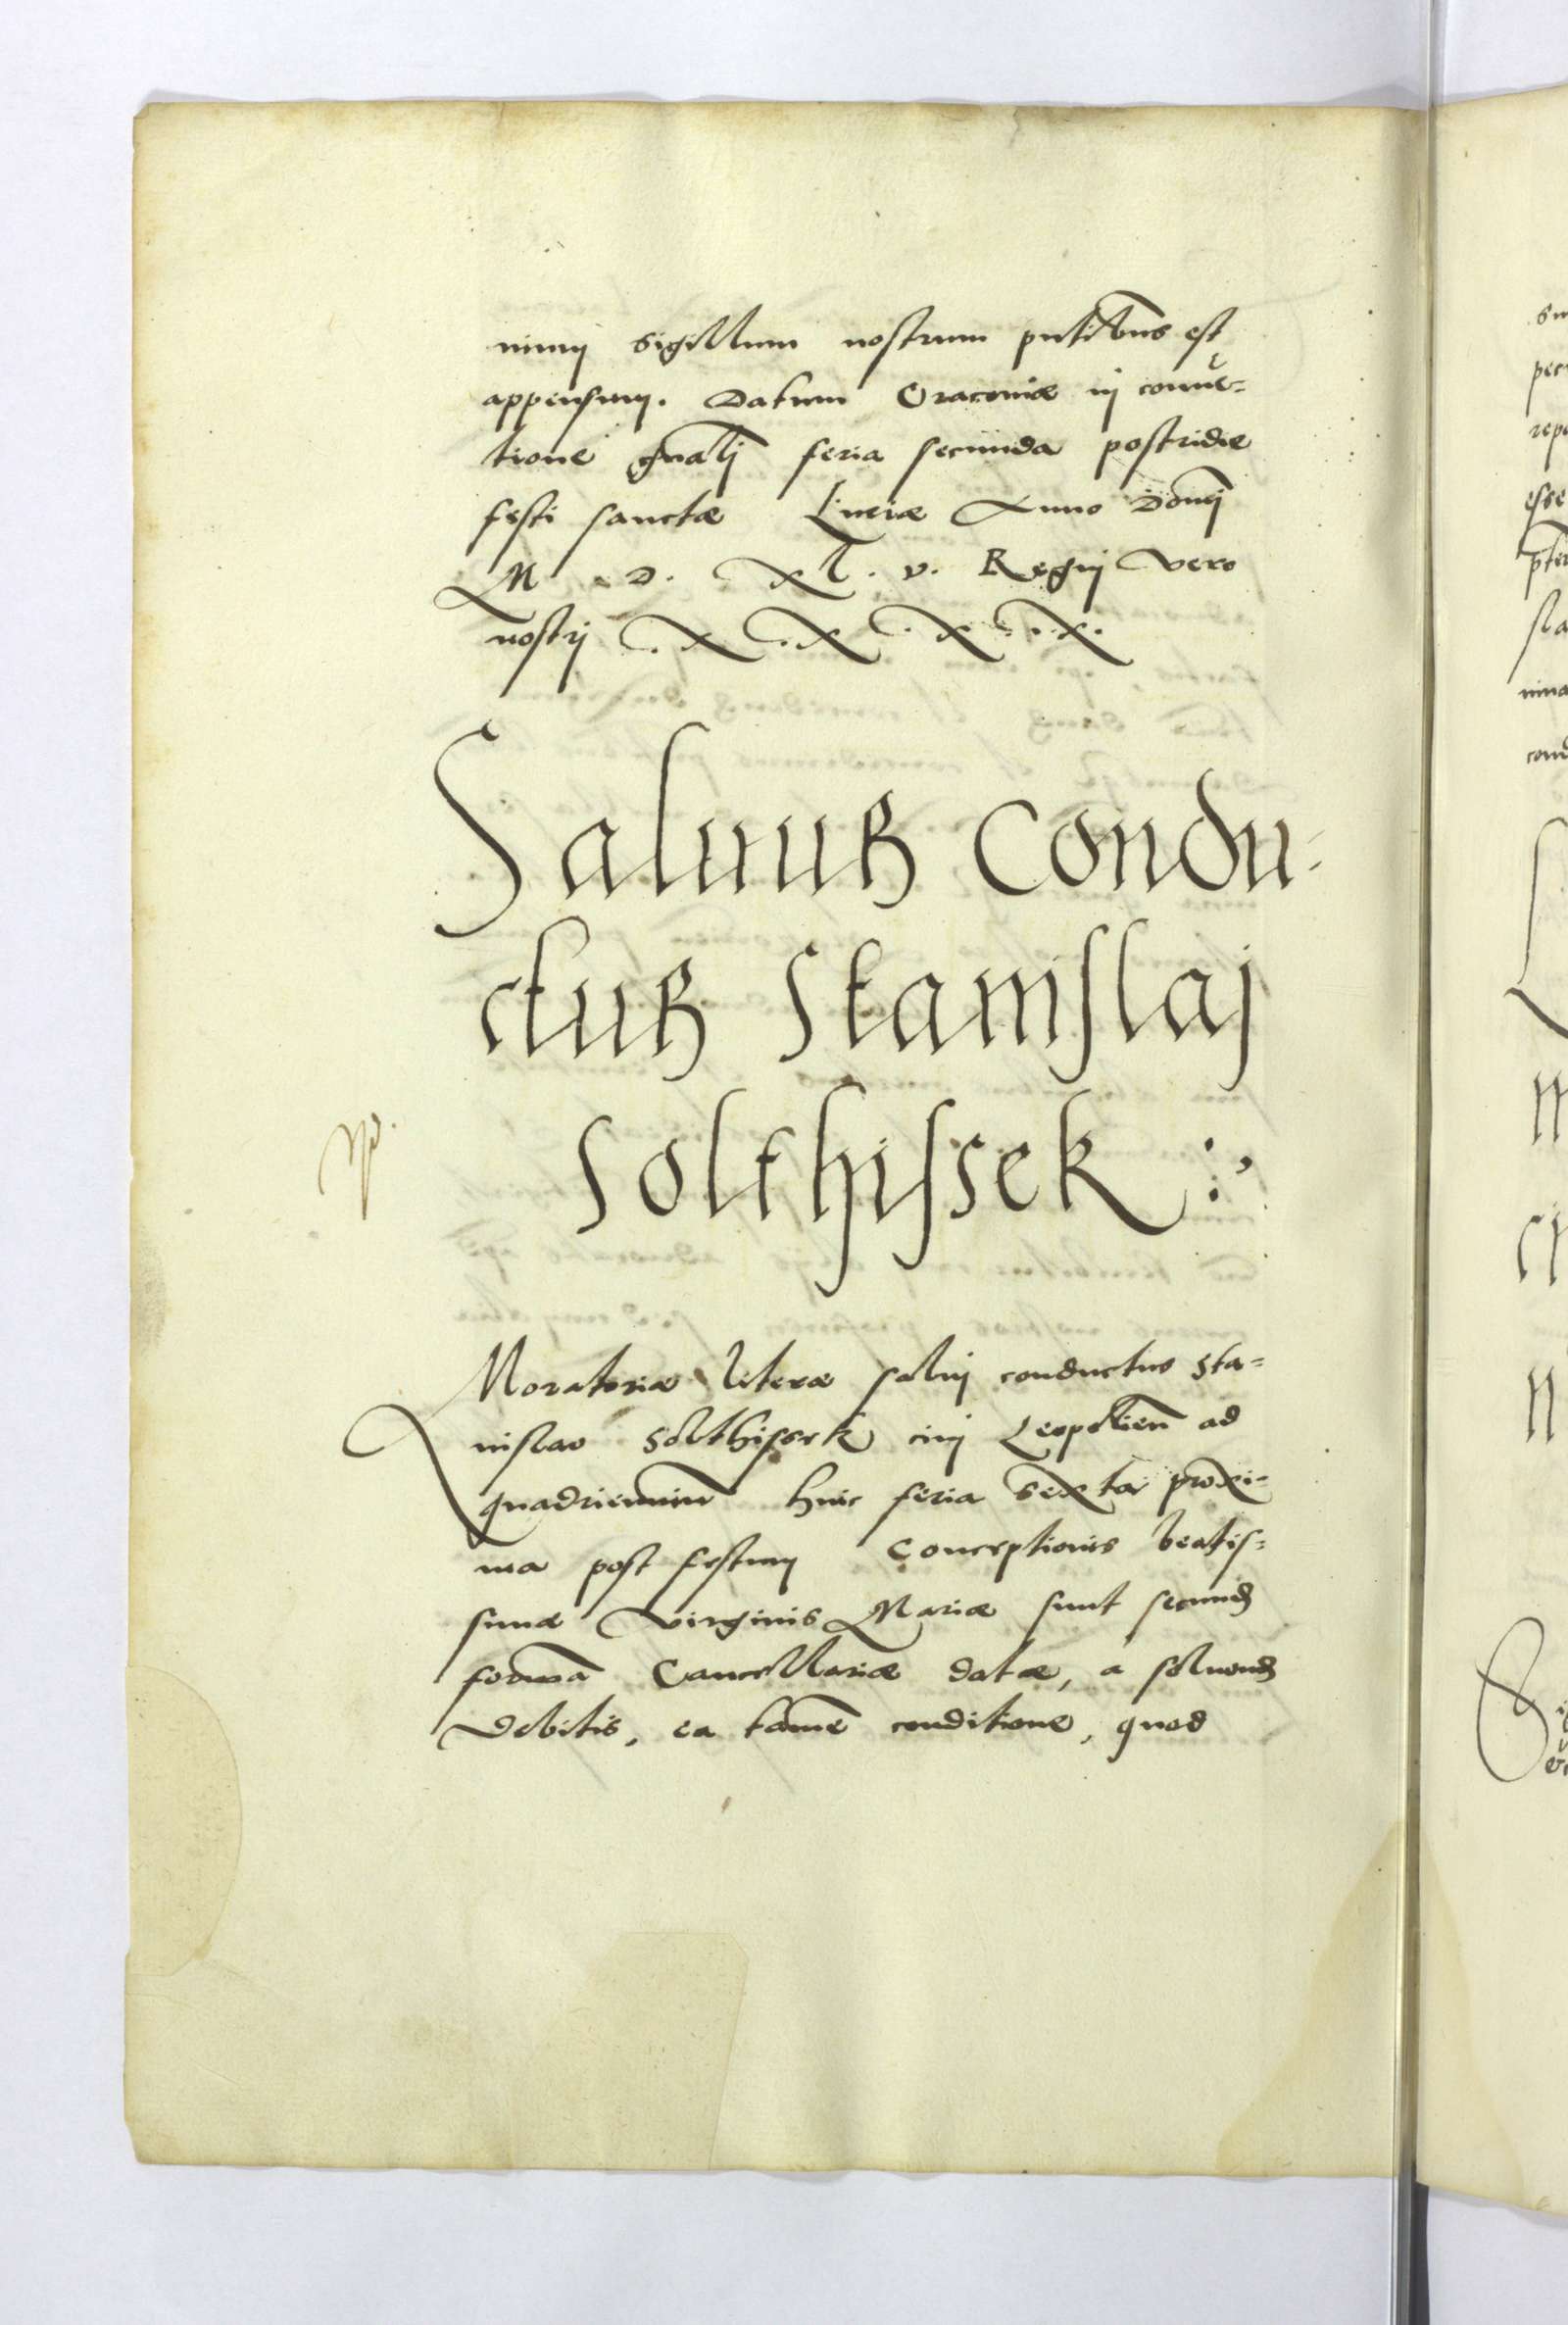 nium sigillum nostrum pntibus est
appensum. Datum Cracoviæ in conuē-
tione gnalj feria secunda postridie
festi sanctæ Luciæ Anno Domj
M. D. XL. v. Regnj vero
nostrj .X.X.X.X.
Saluus Condu-
ctus Stanislaj
solthissek :,
Moratoriæ literæ salui conductus sta-
nislao solthissek ciuj Leopolien ad
quadrienniū huic feria sexta proxi-
ma post festum Conceptionis beatis-
simæ virginis Mariæ sunt secund
formā Cancellariæ datæ, a soluend
debitis, ea tamē conditione, quod